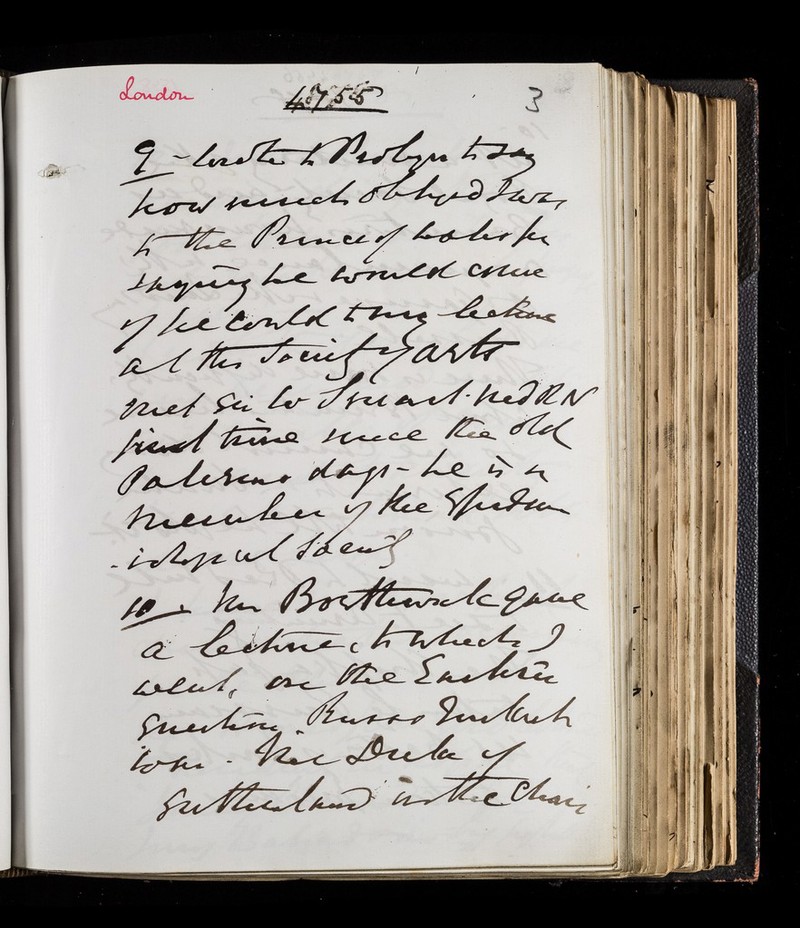 London
4755
3
9 - wrote to Probyn to say
how much obliged I was
to the Prince of Wales for
saying he would come
if he could to my lecture
at the Society of Arts
met Sir W Smart. MD RN
first time since the old
Palermo days - he is a
member of the Epidem
-iological Society
10. Mr Borthwick gave
a lecture, to which I
went, on the Eastern
question. Russo Turkish
War. The Duke of
Sutherland in the Chair